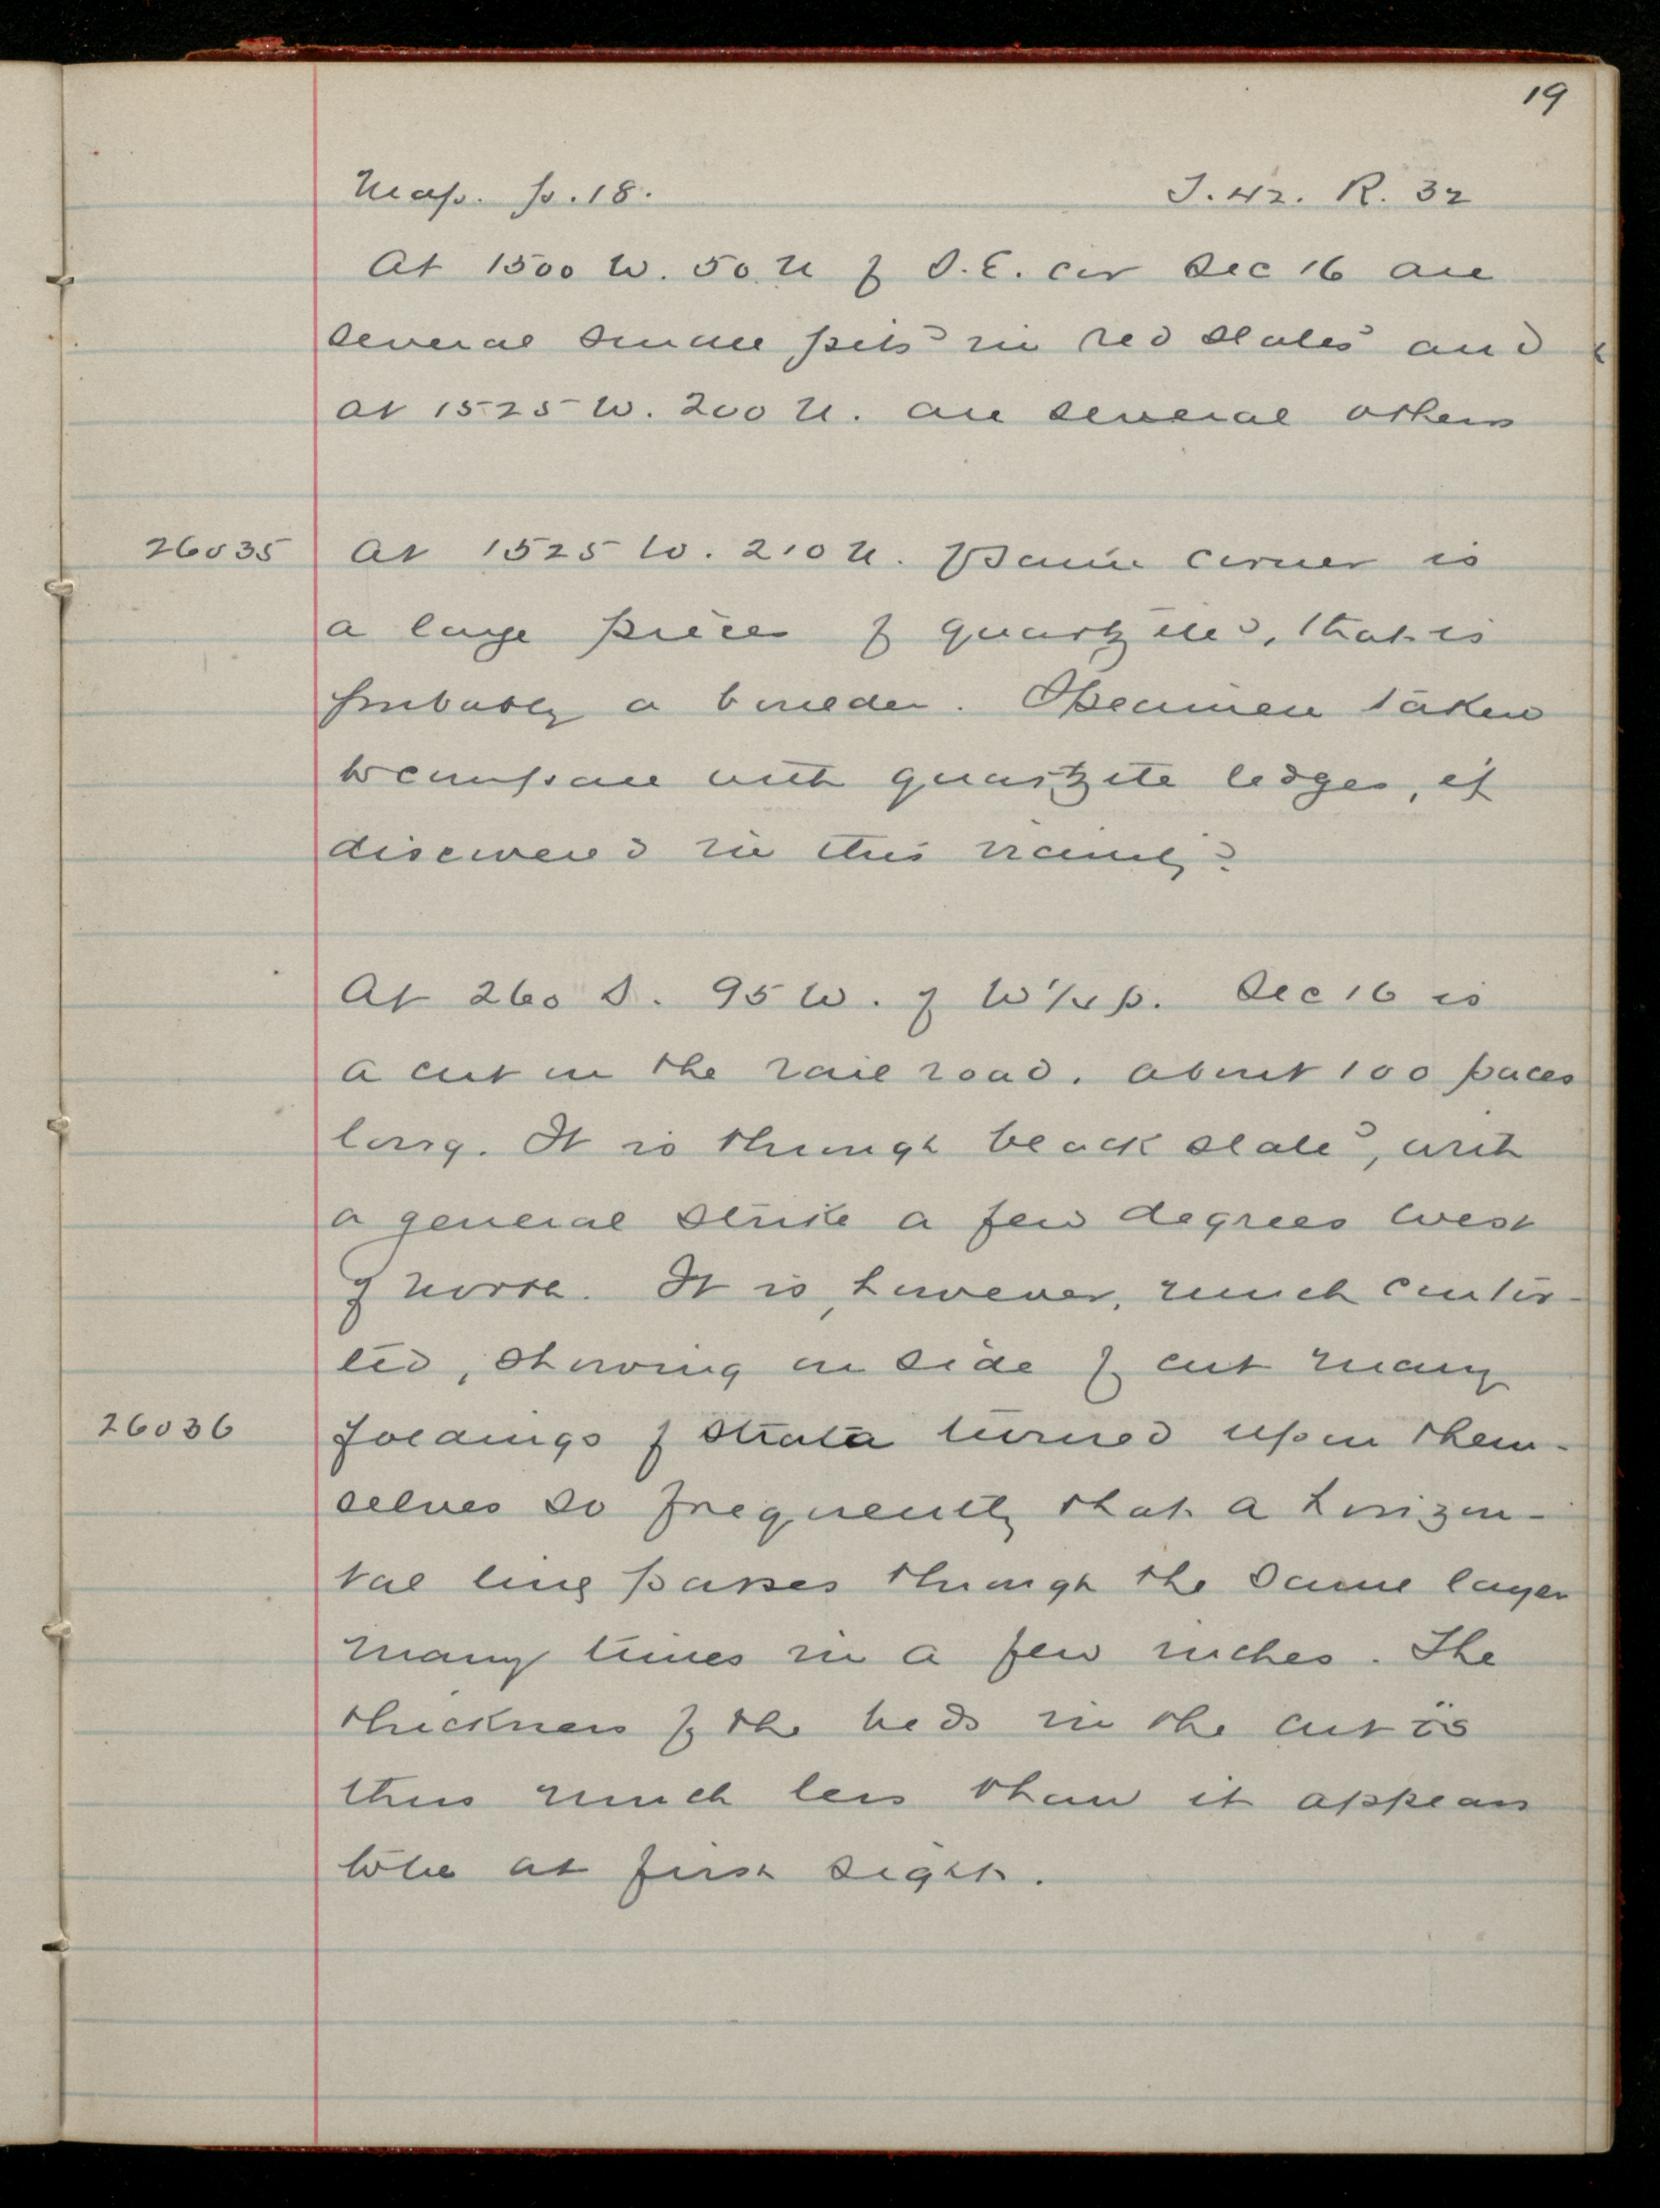 19
Map. p. 18. T. 42. R. 32
At 1500 W. 50 N of S.E. cor Sec 16 are
several small pits in red slates and
at 1525 W. 200 N. are several others
26035 At 1525 W. 210 N. of same corner is
a large piece of quartzite, that is
probably a boulder. Specimen taken
to compare with quartzite ledges, if
discovered in this vicinity.
At 260 S. 95 W. of W 1/4 p. Sec 16 is
a cut in the rail road. about 100 paces
long. It is through black slate, with
a general strike a few degrees west
of north. It is, however, much contor-
ted, showing on side of cut many
26036 foldings of strata turned upon them-
selves so frequently that a horizon-
tal line passes through the same layer
many times in a few inches. The
thickness of the beds in the cut is
thus much less than it appears
to be at first sight.